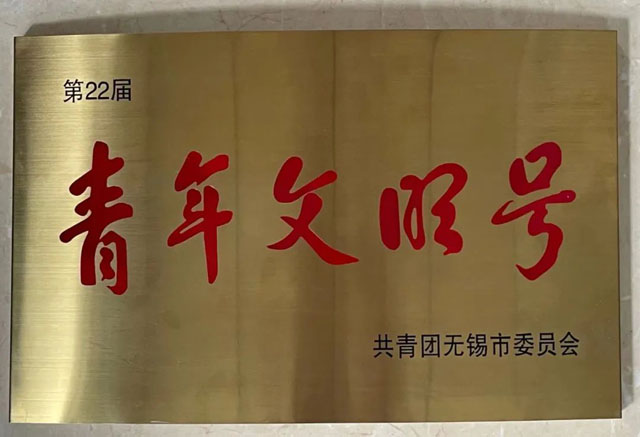 第22届
青年文明号
共青团无锡市委员会